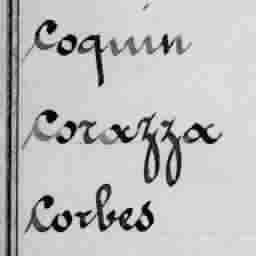 Coquin
Corazza
Corbes